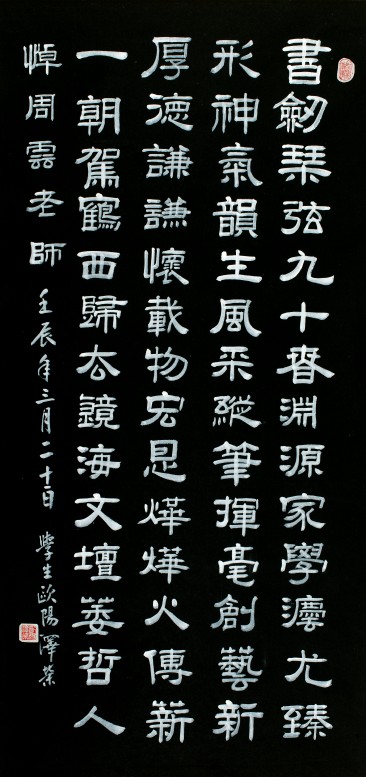 書劒琹弦九十春淵源家學灋尤臻
形神氣韻生風采縱筆揮毫創藝新
厚德謙謙懷載物宏恩燁燁火傳薪
一朝駕鶴西歸去鏡海文壇萎哲人
悼周雲老師 壬辰年三月二十日 學生歐陽澤榮